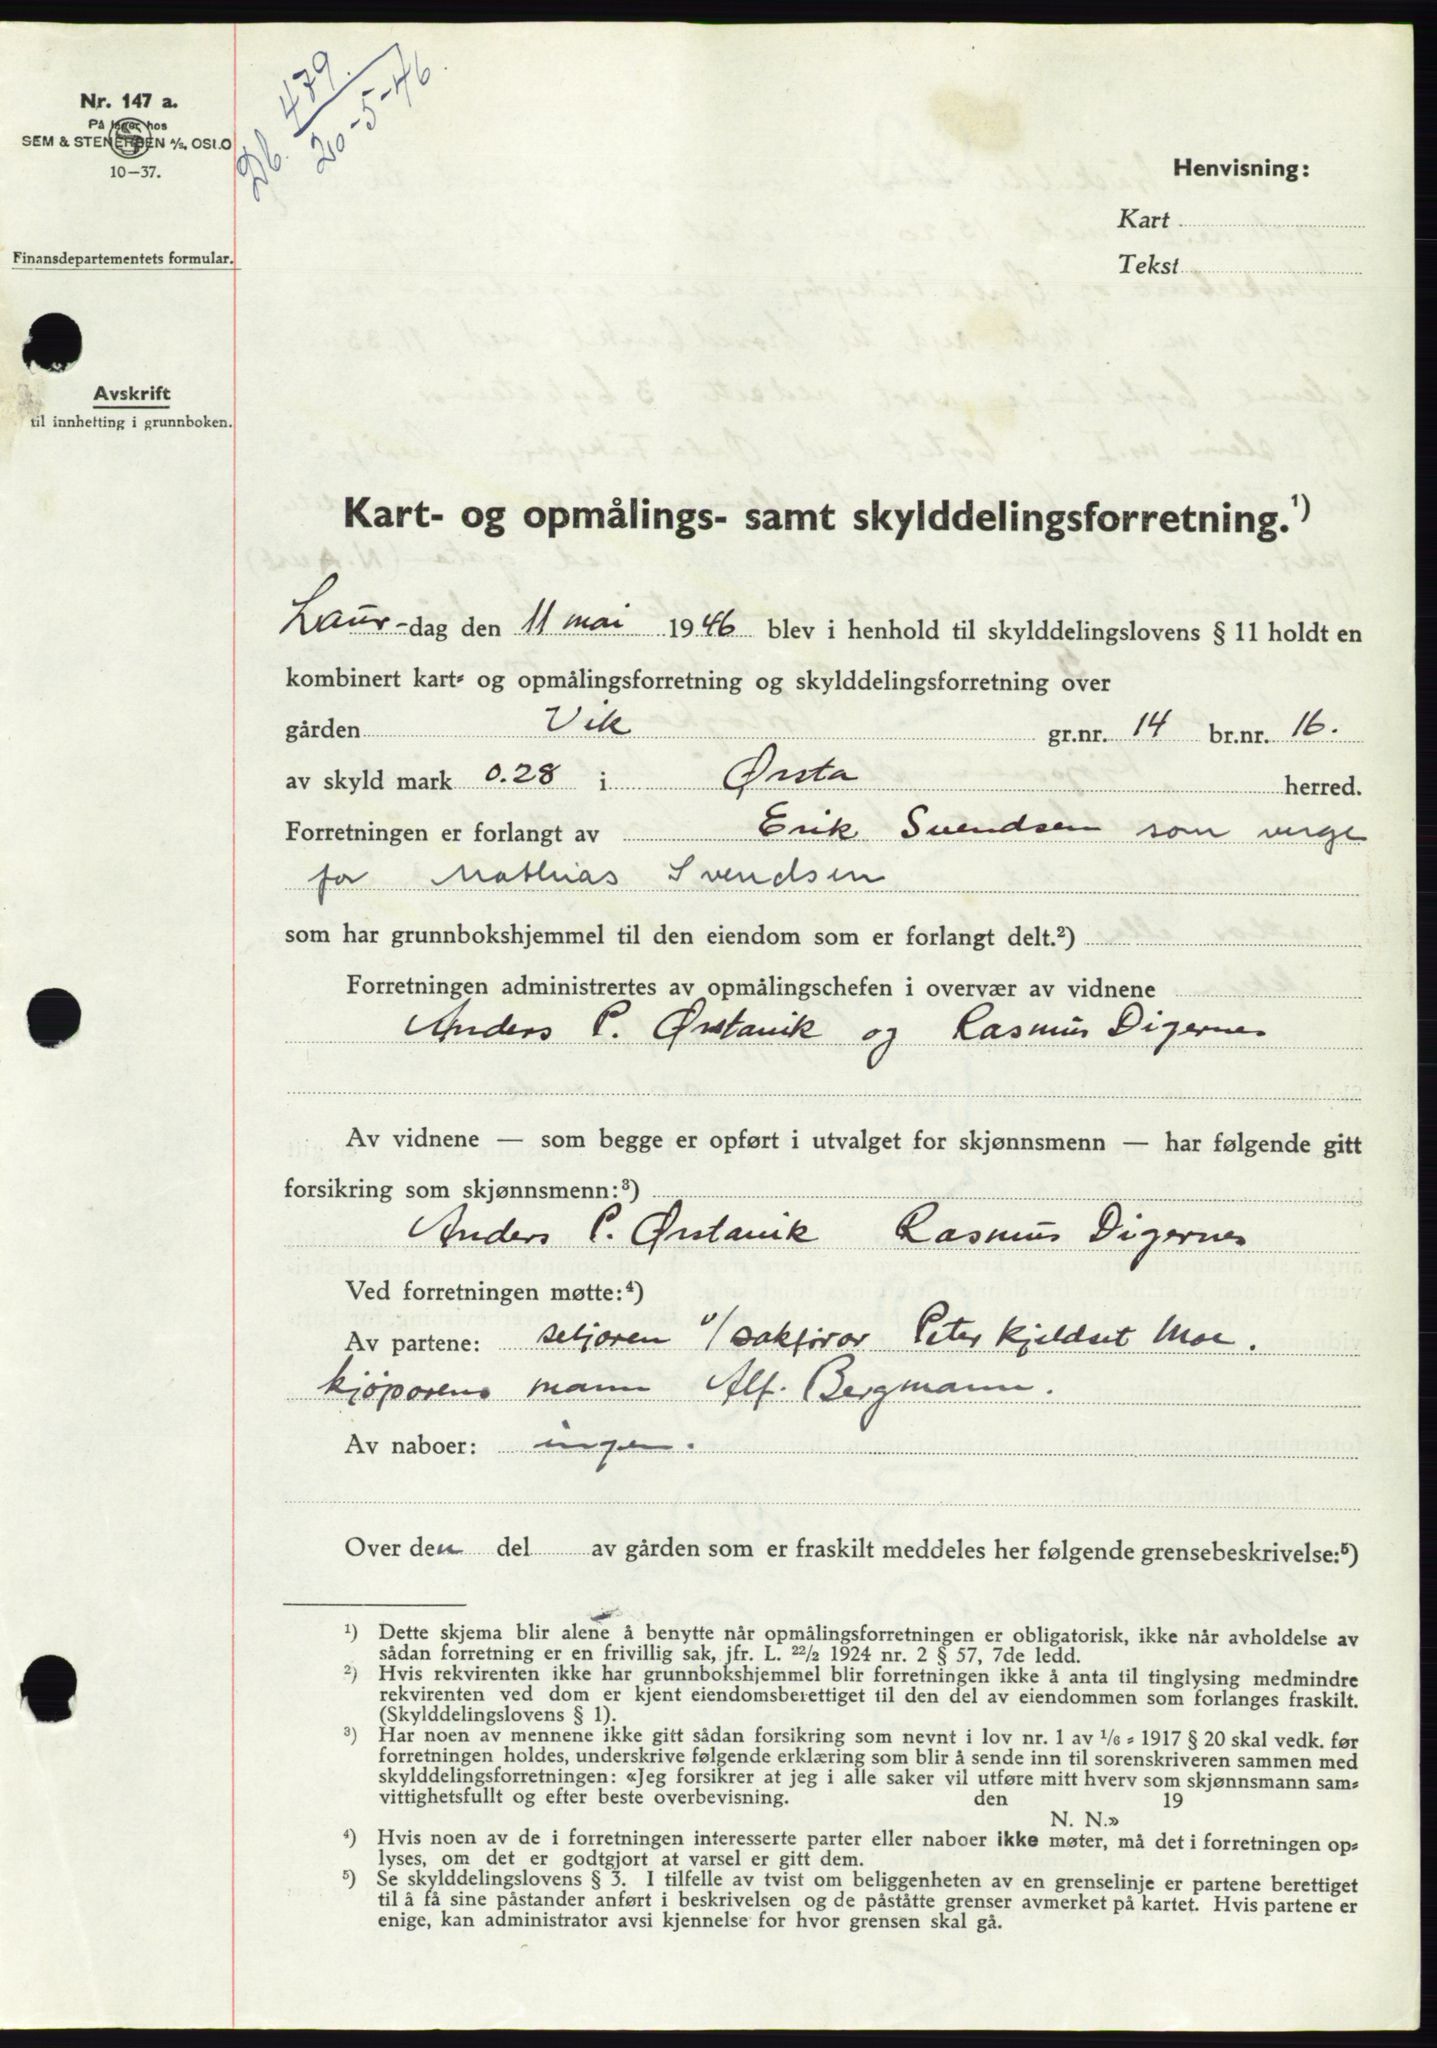 Db. 479.
20-5-46.
Nr. 147 a.
På lager hos
SEM & STENERSEN A/S, OSLO
10-37.
Finansdepartementets formular.
Henvisning:
Kart
Tekst
Avskrift
til innhetting i grunnboken.
Kart- og opmålings- samt skylddelingsforretning.¹)
Laur-dag den 11 mai 1946 blev i henhold til skylddelingslovens § 11 holdt en
kombinert kart- og opmålingsforretning og skylddelingsforretning over
gården Vik gr.nr. 14 br.nr. 16.
av skyld mark 0.28 i Ørsta herred.
Forretningen er forlangt av Erik Svendsen som verge
for Mathias Svendsen
som har grunnbokshjemmel til den eiendom som er forlangt delt.²)
Forretningen administrertes av opmålingschefen i overvær av vidnene
Anders P. Ørstavik og Rasmus Digernes
Av vidnene — som begge er opført i utvalget for skjønnsmenn — har følgende gitt
forsikring som skjønnsmenn:³)
Anders P. Ørstavik Rasmus Digernes
Ved forretningen møtte:⁴)
Av partene: seljaren v/sakførar Peter Kjeldset Moe.
kjøparens mann Alf. Bergmann.
Av naboer: ingen.
Over den del av gården som er fraskilt meddeles her følgende grensebeskrivelse:⁵)
¹) Dette skjema blir alene å benytte når opmålingsforretningen er obligatorisk, ikke når avholdelse av
sådan forretning er en frivillig sak, jfr. L. 22/2 1924 nr. 2 § 57, 7de ledd.
²) Hvis rekvirenten ikke har grunnbokshjemmel blir forretningen ikke å anta til tinglysing medmindre
rekvirenten ved dom er kjent eiendomsberettiget til den del av eiendommen som forlanges fraskilt.
(Skylddelingslovens § 1).
³) Har noen av mennene ikke gitt sådan forsikring som nevnt i lov nr. 1 av 1/6 - 1917 § 20 skal vedk. før
forretningen holdes, underskrive følgende erklæring som blir å sende inn til sorenskriveren sammen med
skylddelingsforretningen: «Jeg forsikrer at jeg i alle saker vil utføre mitt hverv som skjønnsmann sam-
vittighetsfullt og efter beste overbevisning. den 19
N. N.»
⁴) Hvis noen av de i forretningen interesserte parter eller naboer ikke møter, må det i forretningen op-
lyses, om det er godtgjort at varsel er gitt dem.
⁵) Se skylddelingslovens § 3. I tilfelle av tvist om beliggenheten av en grenselinje er partene berettiget
til å få sine påstander anført i beskrivelsen og de påståtte grenser avmerket på kartet. Hvis partene er
enige, kan administrator avsi kjennelse for hvor grensen skal gå.